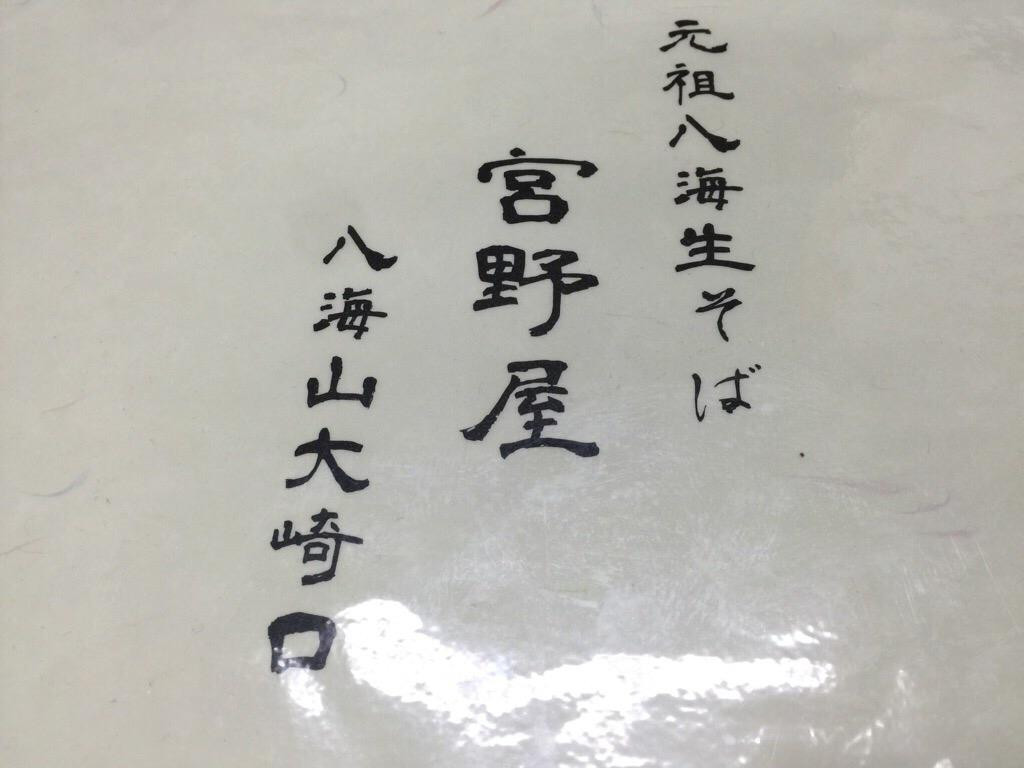 元祖八海生そば
宮野屋
八海山大崎口